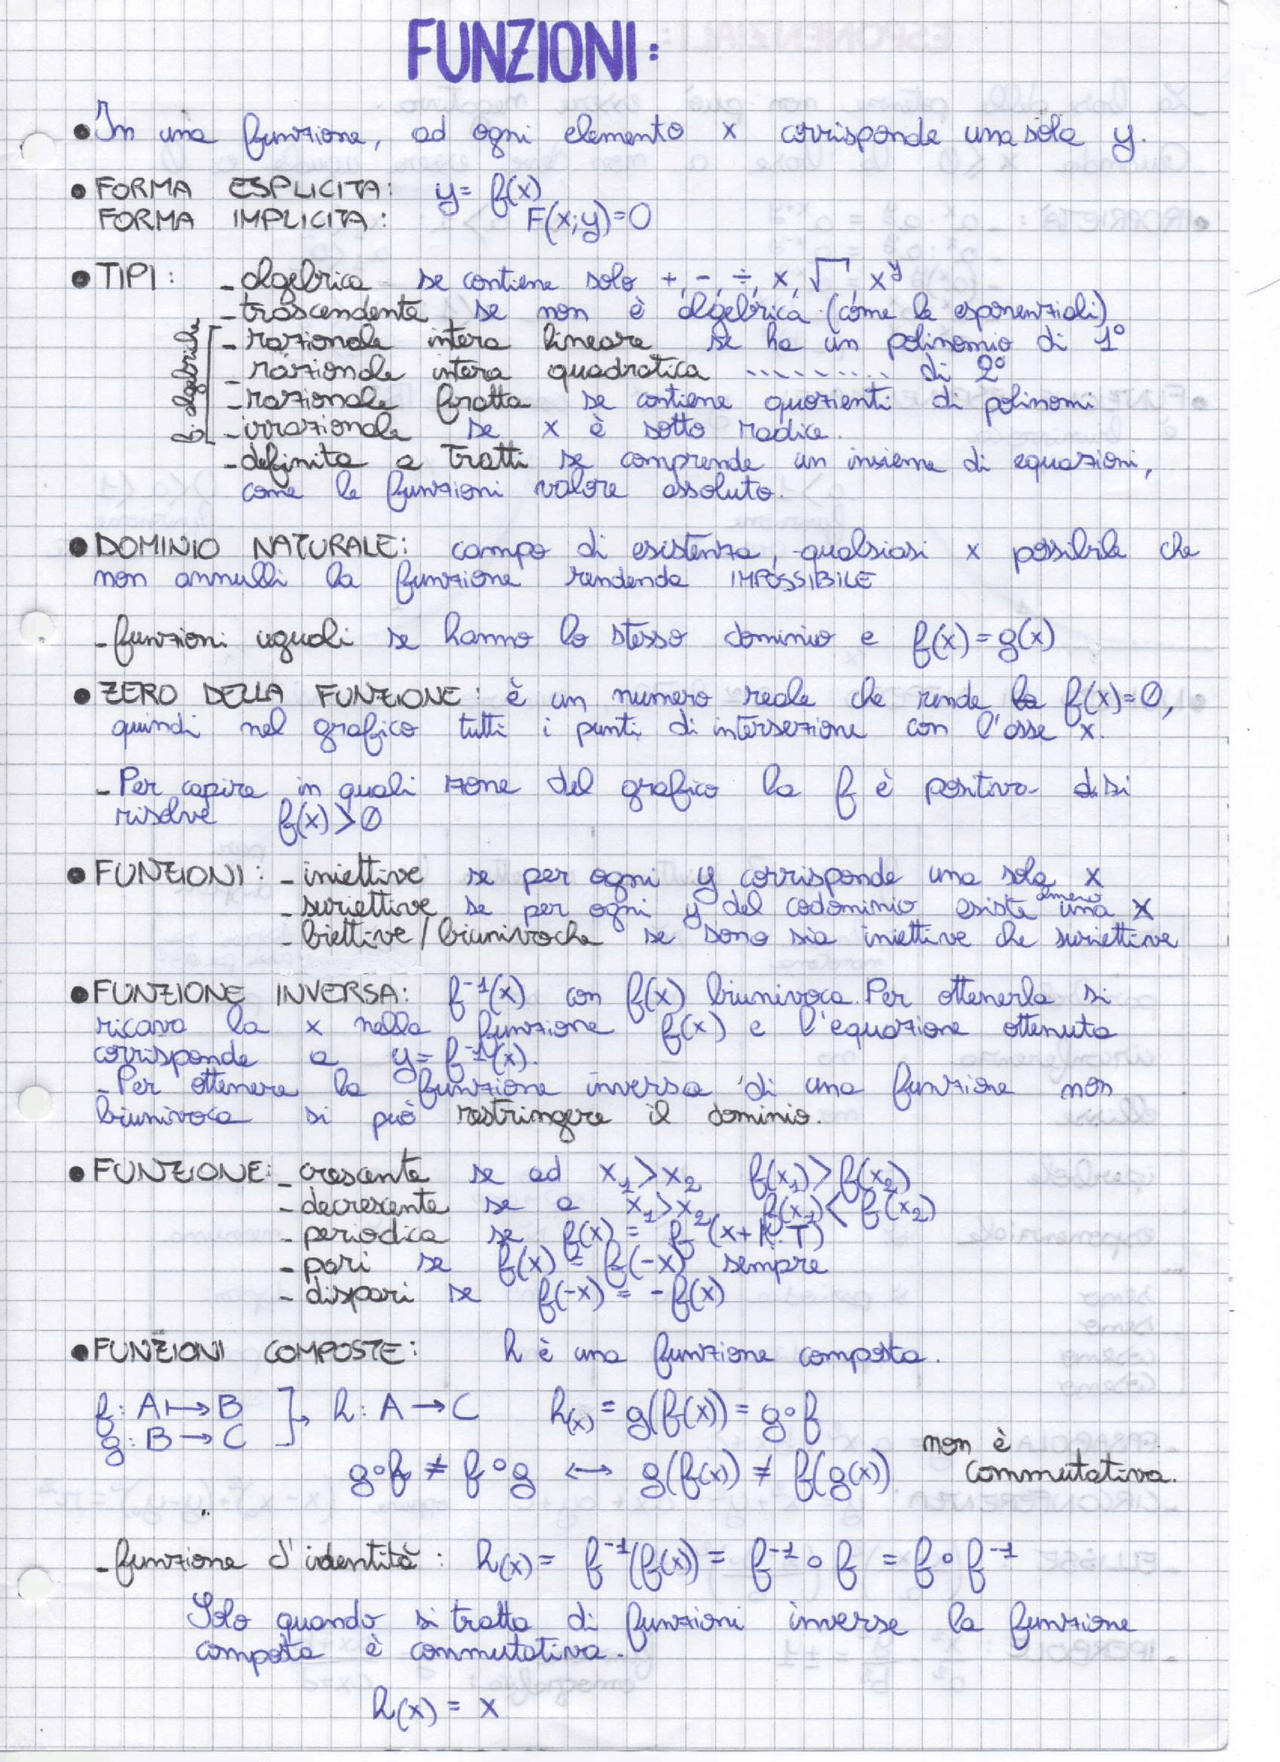 FUNZIONI:
• In una funzione, ad ogni elemento x corrisponde una sola y.
• FORMA ESPLICITA: y= f(x)
FORMA IMPLICITA: F(x;y)=0
• TIPI: - algebrica se contiene solo +, -, ÷, x, √, xʸ
- trascendente se non è algebrica (come le esponenziali)
di algebriche
- razionale intera lineare se ha un polinomio di 1°
- razionale intera quadratica .......... di 2°
- razionale fratta se contiene quozienti di polinomi
- irrazionale se x è sotto radice.
- definita a tratti se comprende un insieme di equazioni,
come le funzioni valore assoluto.
• DOMINIO NATURALE: campo di esistenza, qualsiasi x possibile che
non annulli la funzione rendendo IMPOSSIBILE
- funzioni uguali se hanno lo stesso dominio e f(x)=g(x)
• ZERO DELLA FUNZIONE: è un numero reale che rende la f(x)=0,
quindi nel grafico tutti i punti di intersezione con l'asse x.
- Per capire in quali zone del grafico la f è positiva si
risolve f(x)>0
• FUNZIONI: - iniettive se per ogni y corrisponde una sola x
- suriettive se per ogni y del codominio esiste almeno una x
- biettive/biunivoche se sono sia iniettive che suriettive
• FUNZIONE INVERSA: f⁻¹(x) con f(x) biunivoca. Per ottenerla si
ricava la x nella funzione f(x) e l'equazione ottenuta
corrisponde a y= f⁻¹(x).
- Per ottenere la funzione inversa di una funzione non
biunivoca si può restringere il dominio.
• FUNZIONE: - crescente se ad x₁>x₂ f(x₁)>f(x₂)
- decrescente se a x₁>x₂ f(x₁)< f(x₂)
- periodica se f(x) = f (x+K·T)
- pari se f(x) = f(-x) sempre
- dispari se f(-x) = -f(x)
• FUNZIONI COMPOSTE: h è una funzione composta.
f: A↦B
g: B→C
h: A→C h(x) = g(f(x)) = g∘f
g∘f ≠ f∘g ↔ g(f(x)) ≠ f(g(x)) non è
commutativa.
- funzione d'identità: h(x) = f⁻¹(f(x)) = f⁻¹∘f = f∘f⁻¹
Solo quando si tratta di funzioni inverse la funzione
composta è commutativa.
h(x) = x